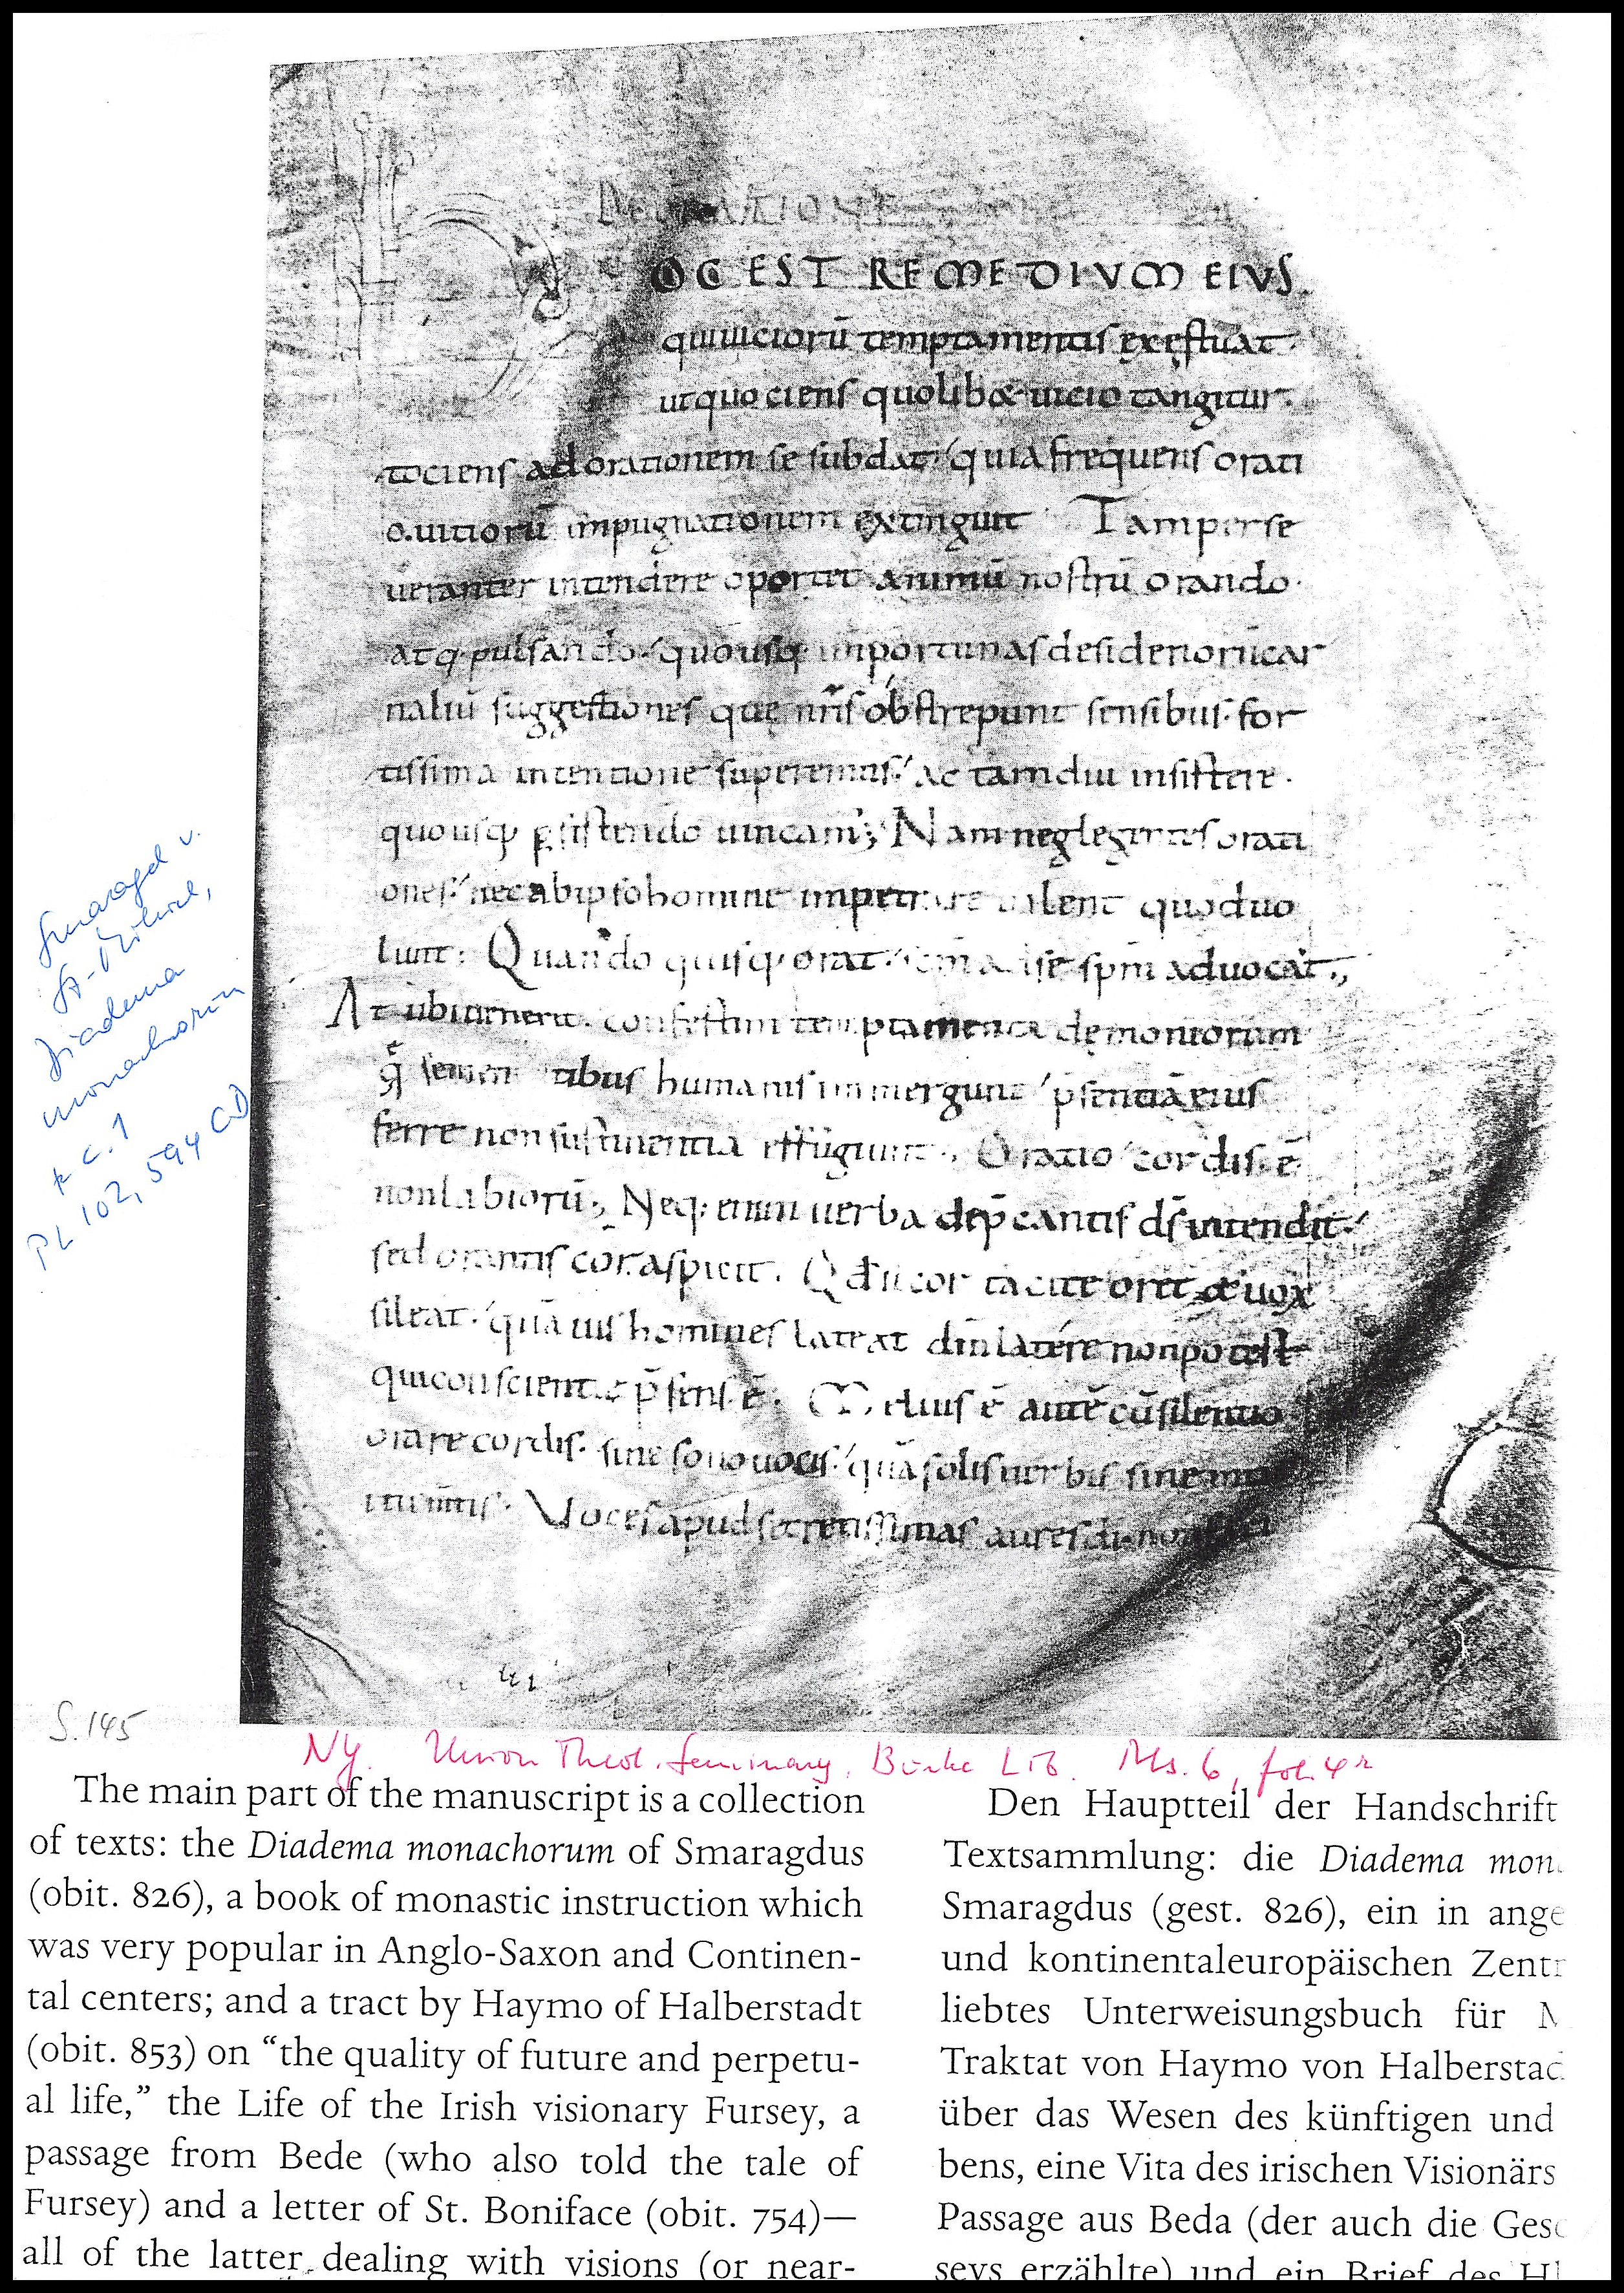 DE ORATIONE
OC EST REMEDIVM EIVS
quiuiciorū temptamentis exęstuat·
utquociens quolib& uicio tangitur·
tociens adorationem se subdat· quia frequens orati
o.uitiorū impugnationem extinguit Tamperse
ueranter intendere oportet animū nostrū orando·
atq· pulsando· quousq· inportunas desideriorūcar
naliū suggestiones quę nr̄is obstrepunt sensibus· for
tissima intentione superemus· ac tamdiu insistere·
quousq· ꝑsistendo uincam'; Nam neglegentes orati
ones· nec abipso homine impetrare ualent quoduo
lunt· Quando quisq· orat· sc̄m adse sp̄m aduocat·,
At ubiuenerit· confestim temptamenta demoniorum
quę semen tibus humanis inmergunt· p̄sentiā eius
ferre nonsustinentia effugiunt·, Oratio cordis· ē
nonlabiorū·, Neq· enim uerba dep̄cantis d̄s intendit·
sed orantis cor· aspicit· Qd̄sicor tacite oret &uox
sileat· quāuis homines lateat dm̄ latére nonpotest
quiconscientię p̄sens·ē· Melius ē autē cū silentio
orare cordis· sine sono uocis· quā solis uerbis sine int
uitu mentis· Voces apud secretissimas aures di· non
Smaragd v.
St-Mihiel,
Diadema
monachorū
c. 1
PL 102, 594 CD
S. 145
NY. Union Theol. Seminary, Burke Lib. Ms. 6, fol. 4r
The main part of the manuscript is a collection
of texts: the Diadema monachorum of Smaragdus
(obit. 826), a book of monastic instruction which
was very popular in Anglo-Saxon and Continen-
tal centers; and a tract by Haymo of Halberstadt
(obit. 853) on “the quality of future and perpetu-
al life,” the Life of the Irish visionary Fursey, a
passage from Bede (who also told the tale of
Fursey) and a letter of St. Boniface (obit. 754)—
all of the latter dealing with visions (or near-
Den Hauptteil der Handschrift
Textsammlung: die Diadema mon
Smaragdus (gest. 826), ein in ange
und kontinentaleuropäischen Zent
liebtes Unterweisungsbuch für
Traktat von Haymo von Halberstad
über das Wesen des künftigen und
bens, eine Vita des irischen Visionärs
Passage aus Beda (der auch die Gesc
seys erzählte) und ein Brief des Hl